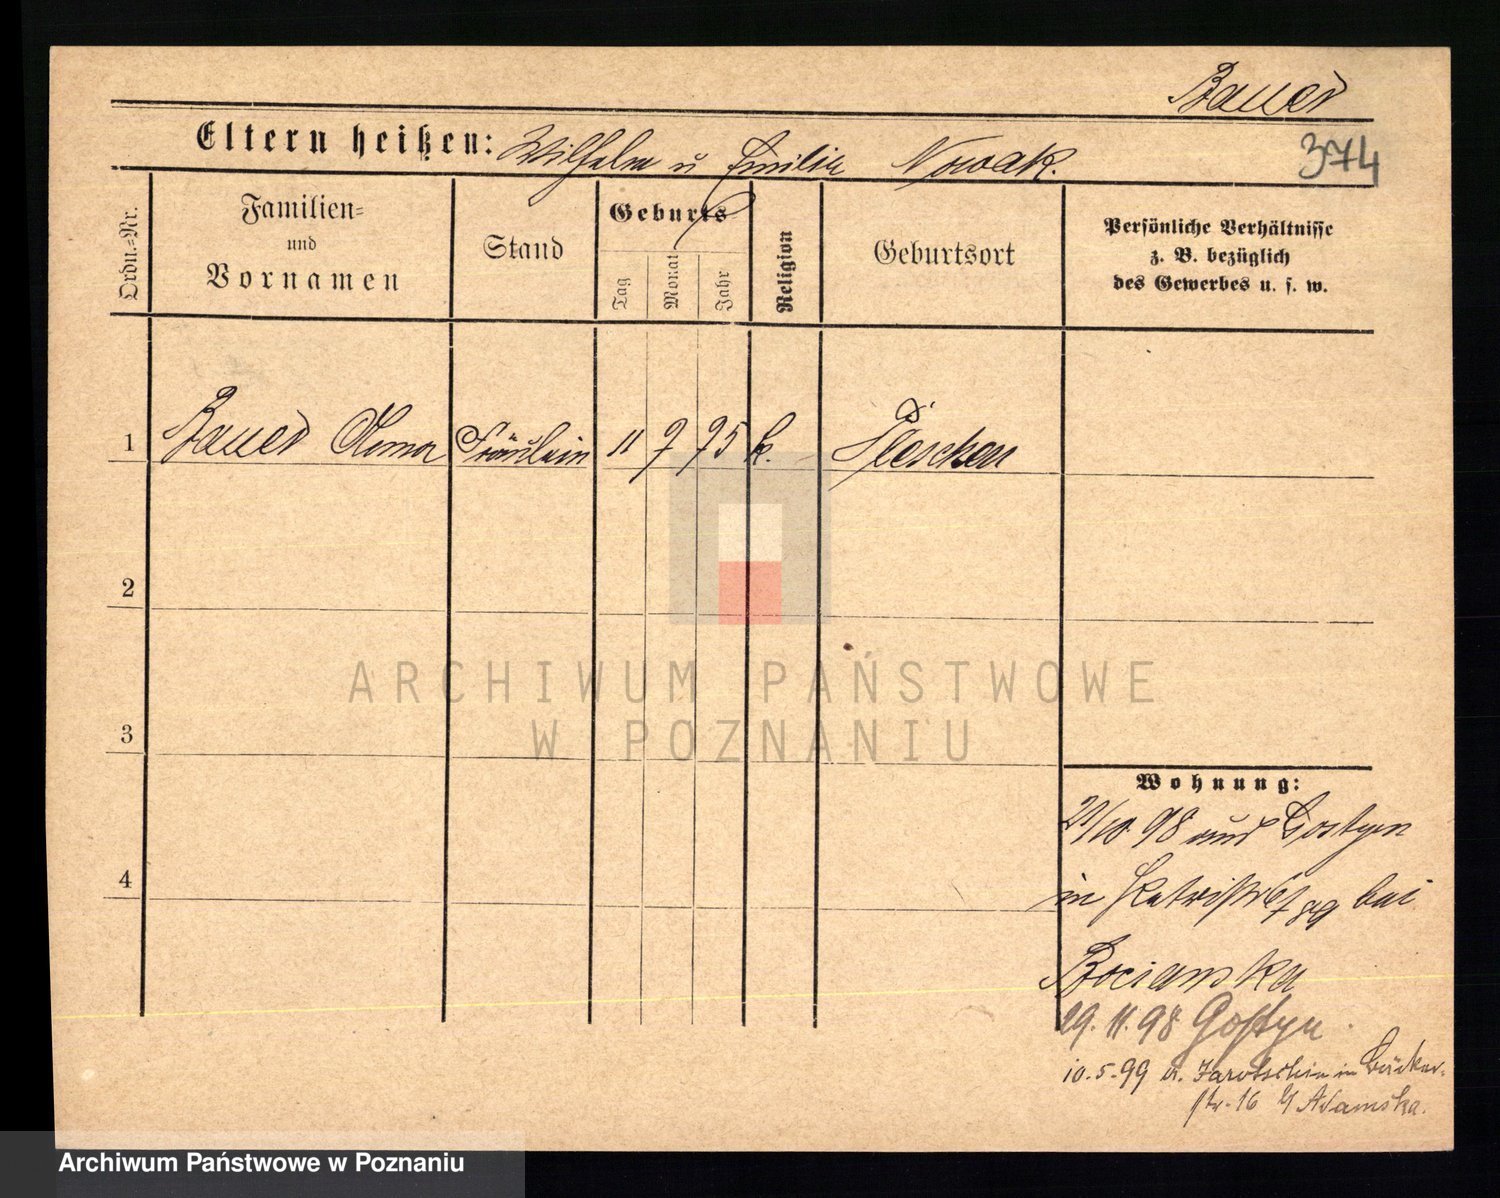 Bauer
374
Eltern heißen: Wilhelm u Emilie Nowak.
Ordn.-Nr.
Familien-
und
Vornamen
Stand
Geburts
Tag
Monat
Jahr
Religion
Geburtsort
Persönliche Verhältnisse
z. B. bezüglich
des Gewerbes u. s. w.
1 Bauer Fräulein 11 7 75 k. Pleschen
2
3
4
ARCHIWUM PAŃSTWOWE
W POZNANIU
Wohnung:
21/10 98 aus Gostyn
in bei
Bocianska
29. 11. 98 Gostyn
10.5.99 v. Jarotschin in Bäcker-
str. 16 Adamska.
Archiwum Państwowe w Poznaniu